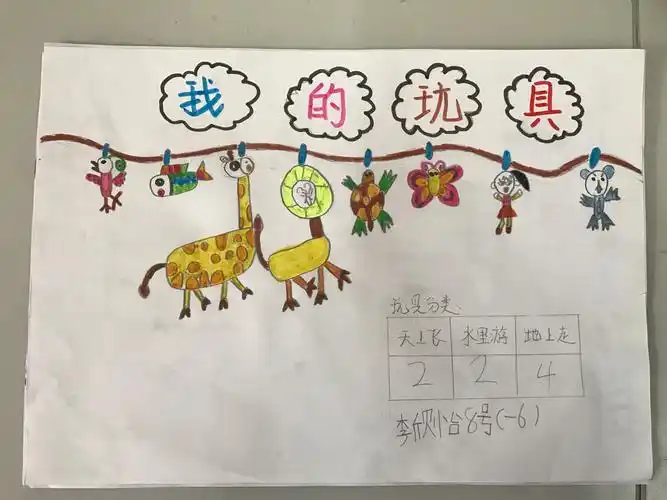 我的玩具
玩具分类.
天上飞 水里游 地上走
2 2 4
李欣怡8号(一6)